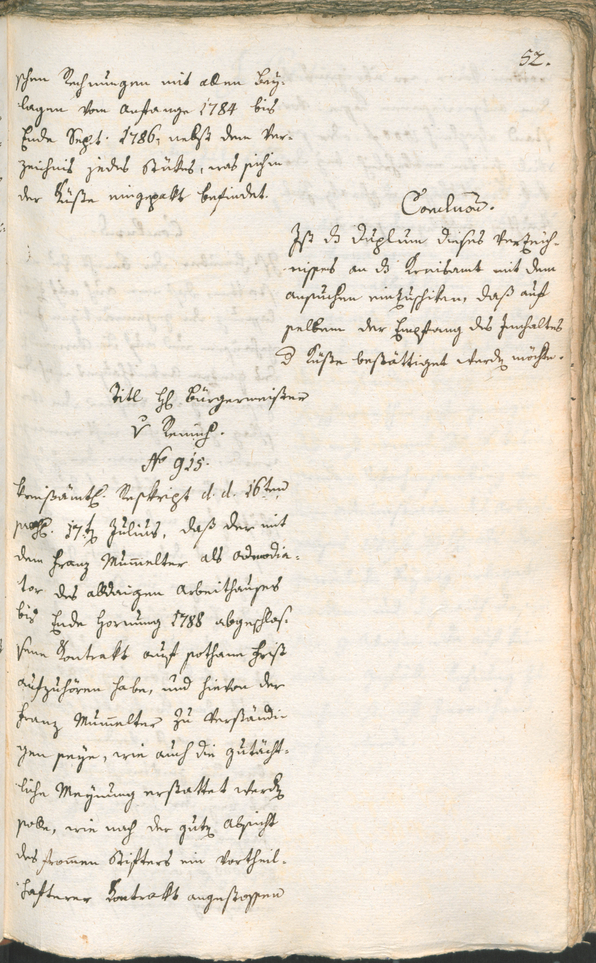 52.
schen Rechnungen mit allen Bey-
lagen vom Anfange 1784 bis
Ende Sept. 1786, nebst dem Ver-
zeichnis jedes Stükes, was sich in
der Kiste eingepakt befindet.
Conclusũ.
Ist ds Duplum dieses Verzeich-
nisses an ds Kreisamt mit dem
ansuchen einzuschiken, daß auf
selbem der Empfang des Inhaltes
d Kiste bestättiget werdꝫ möchte.
Titl H Bürgermeister
v Remich.
No 915.
kreisämtl. Reskript d. d. 16ten
pres. 17tꝫ Julius, daß der mit
dem Franz Mum̄elter als admodia-
tor des alldaigen Arbeithauses
bis Ende Hornung 1788 abgeschlos-
sene Kontrakt auf sothane Frist
aufzuhören habe, und hievon der
Franz Mum̄elter zu verständi-
gen seye, wie auch die gutächt-
liche Meynung erstattet werdꝫ
solle, wie nach der gutꝫ Absicht
des from̄en Stifters ein vortheil-
hafterer Kontrakt angestossen